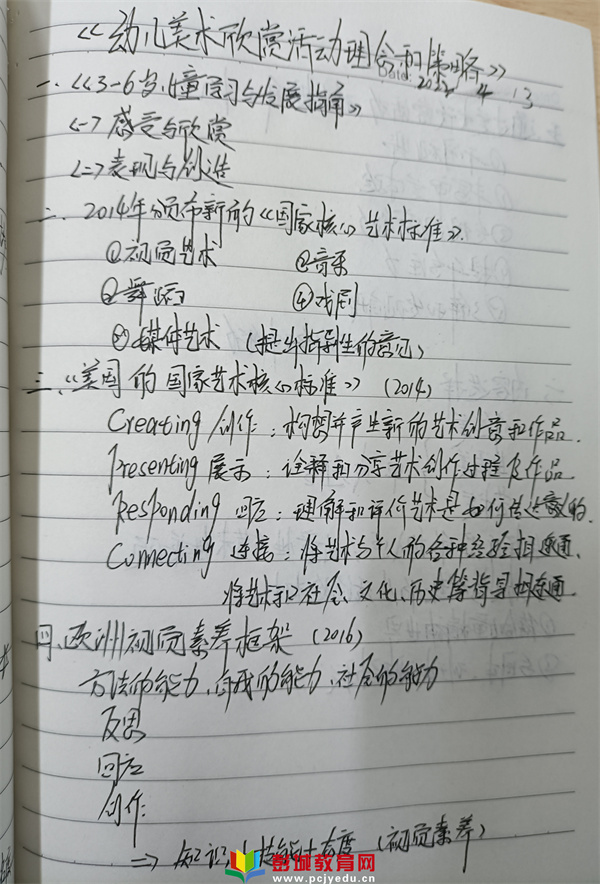 《幼儿美术欣赏活动理念和策略》
Date 2022 4 13
一、《3-6岁儿童学习与发展指南》
<一>感受与欣赏
<二>表现与创造
二、2014年颁布新的《国家核心艺术标准》.
①视觉艺术 ②音乐
③舞蹈 ④戏剧
⑤媒体艺术 (提出指导性的意见)
三、《美国的国家艺术核心标准》 (2014)
Creating/创作:构想并产生新的艺术创意和作品.
Presenting展示:诠释和分享艺术创作过程及作品
Responding 回应:理解和评价艺术是如何传达意义的.
Connecting 连接:将艺术与个人的各种经验相连通、
将艺术和社会、文化、历史等背景相连通.
四、欧洲视觉素养框架 (2016)
方法的能力、自我的能力、社会的能力
反思
回应
创作
=> 知识+技能+态度 (视觉素养)
彭城教育网
www.pcjyedu.cn